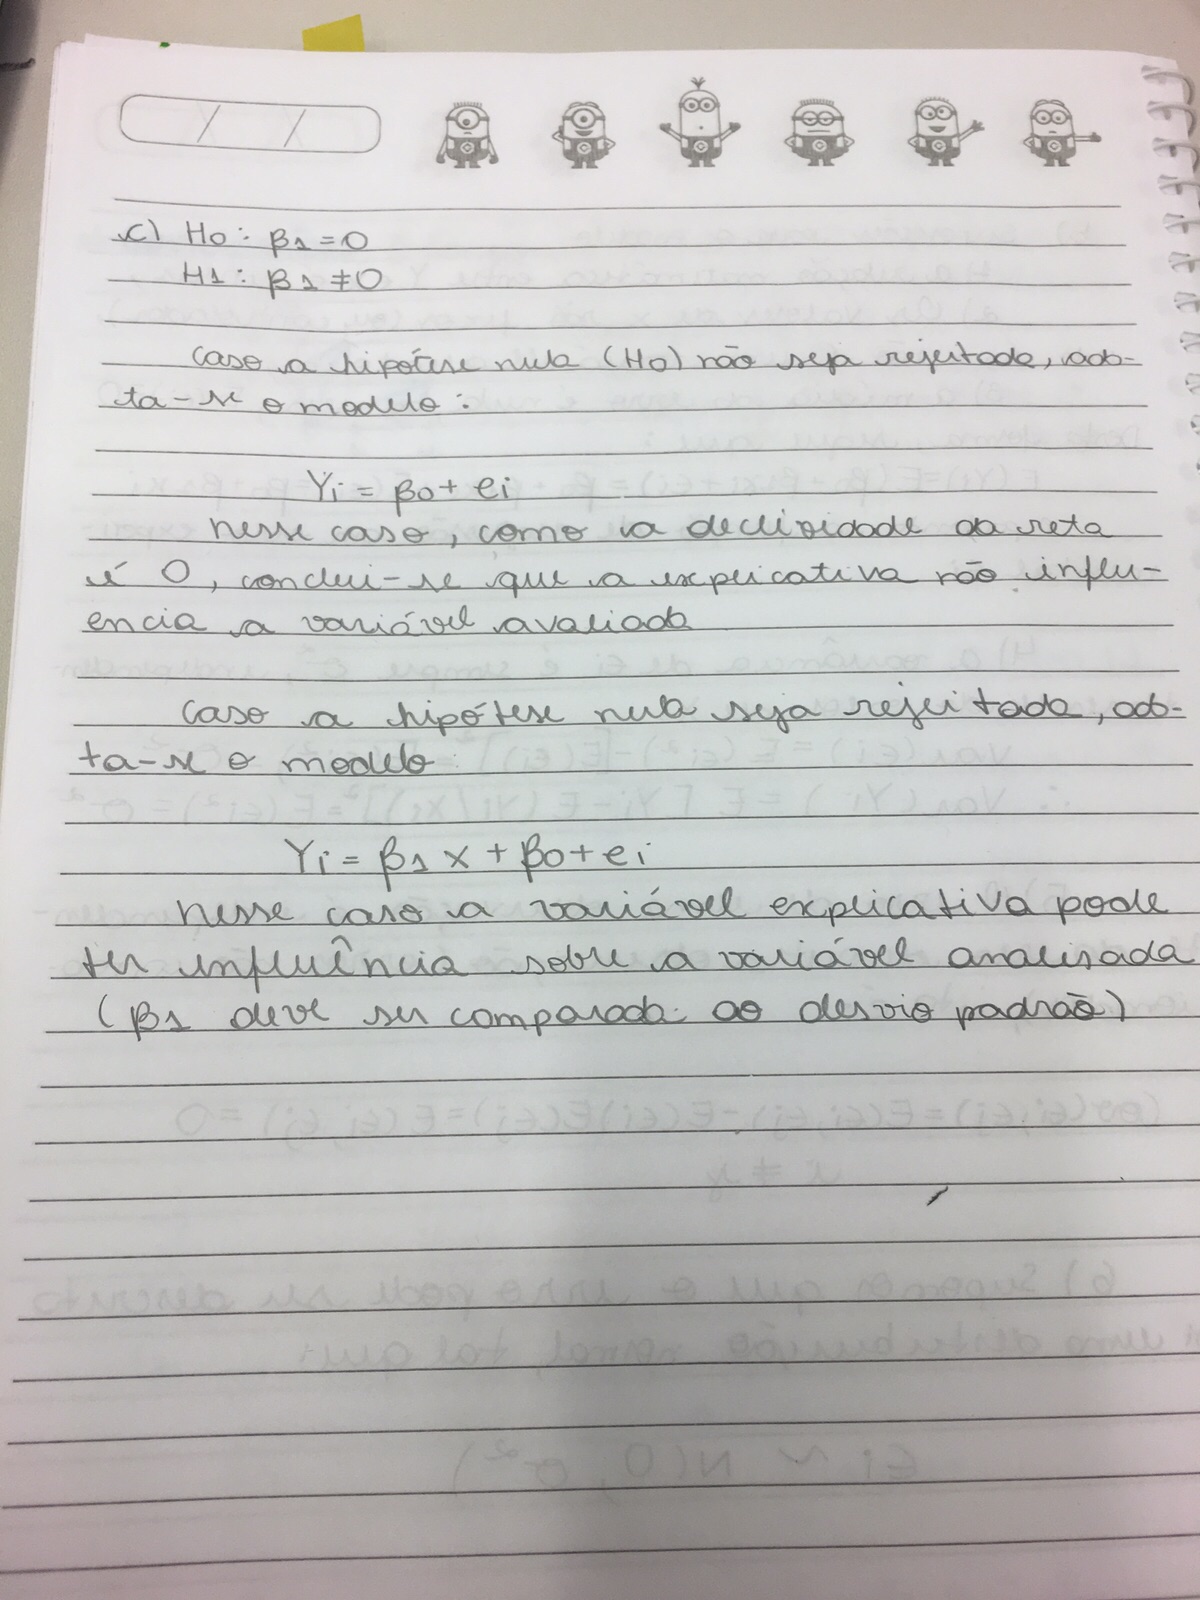 c) H0: β1 = 0
H1: β1 ≠ 0
caso a hipótese nula (H0) não seja rejeitada, ado-
ta-se o modelo:
Yi = β0 + ei
nesse caso, como a declividade da reta
é 0, conclui-se que a explicativa não influ-
encia a variável avaliada
caso a hipótese nula seja rejeitada, ado-
ta-se o modelo:
Yi = β1 x + β0 + ei
nesse caso a variável explicativa pode
ter influência sobre a variável analisada
(β1 deve ser comparada ao desvio padrão)